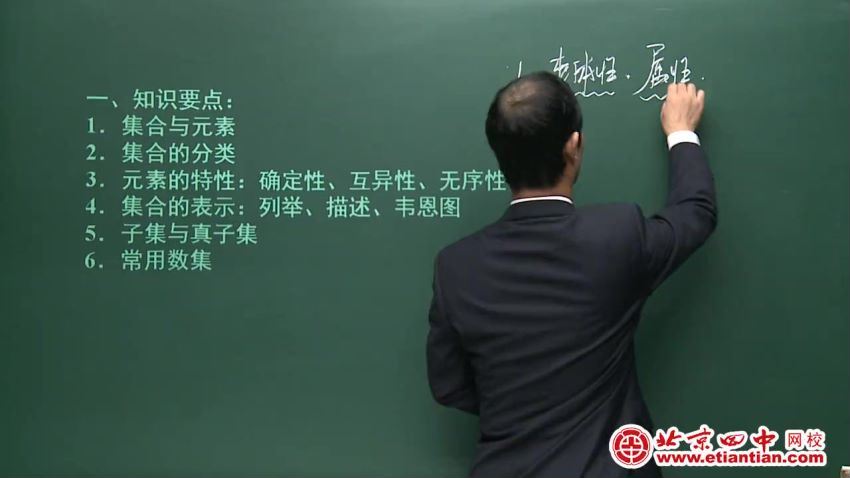 一、知识要点：
1．集合与元素
2．集合的分类
3．元素的特性：确定性、互异性、无序性
4．集合的表示：列举、描述、韦恩图
5．子集与真子集
6．常用数集
属性.
北京四中网校
www.etiantian.com